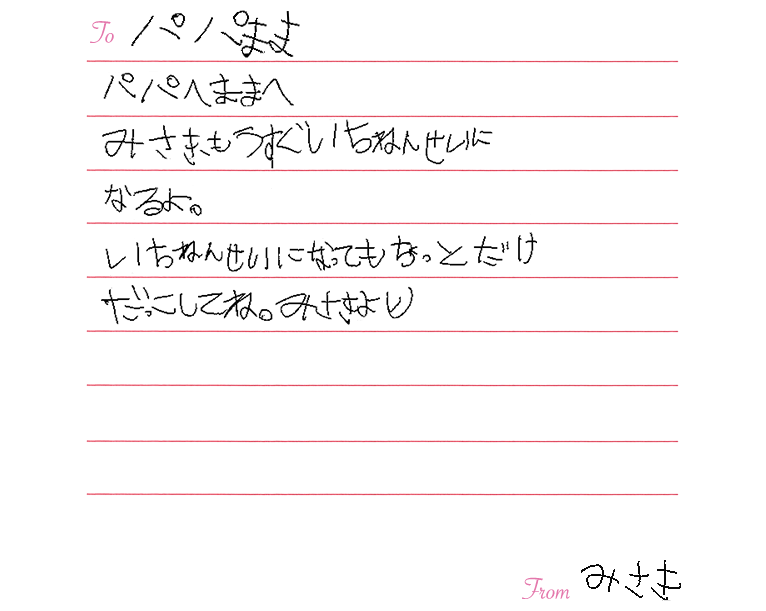 To パパまま
パパへままへ
みさきもうすぐいちねんせいに
なるよ。
いちねんせいになってもちょっとだけ
だっこしてね。みさきより
From みさき